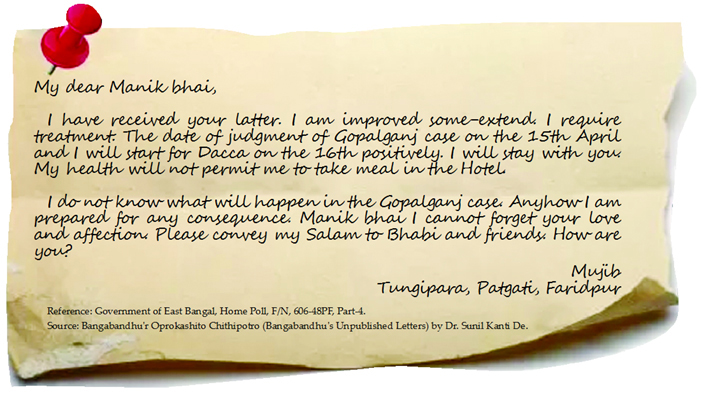 My dear Manik bhai,
I have received your latter. I am improved some-extend. I require
treatment. The date of judgment of Gopalganj case on the 15th April
and I will start for Dacca on the 16th positively. I will stay with you.
My health will not permit me to take meal in the Hotel.
I do not know what will happen in the Gopalganj case. Anyhow I am
prepared for any consequence. Manik bhai I cannot forget your love
and affection. Please convey my Salam to Bhabi and friends. How are
you?
Mujib
Tungipara, Patgati, Faridpur
Reference: Government of East Bangal, Home Poll, F/N, 606-48PF, Part-4.
Source: Bangabandhu'r Oprokashito Chithipotro (Bangabandhu's Unpublished Letters) by Dr. Sunil Kanti De.